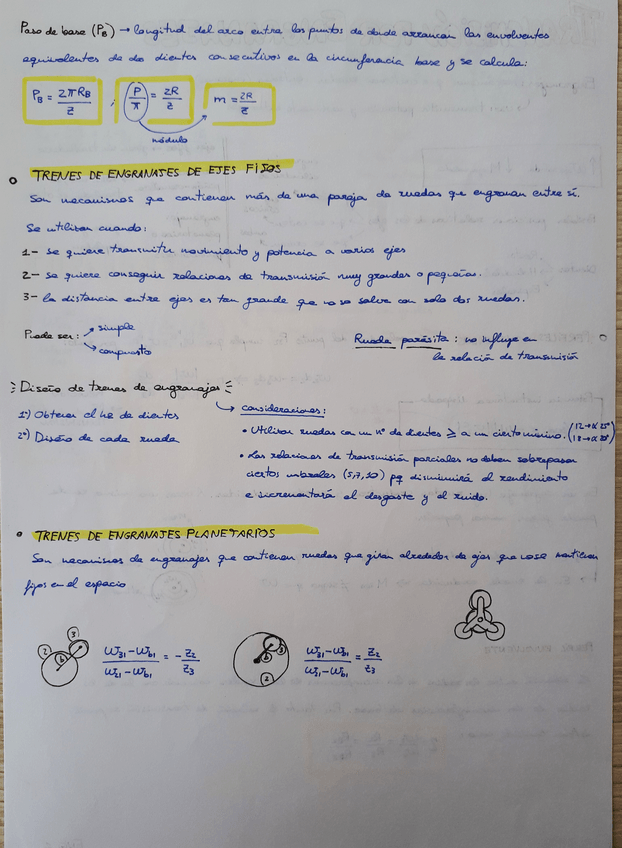 Paso de base (PB) → longitud del arco entre los puntos de donde arrancan las envolventes
equivalentes de do dientes consecutivos en la circunferencia base y se calcula:
PB = 2πRB/z ; P/π = 2R/z  m = 2R/z
módulo
TRENES DE ENGRANAJES DE EJES FIJOS
Son mecanismos que contienen más de una pareja de ruedas que engranan entre sí.
Se utilizan cuando:
1- se quiere transmitir movimiento y potencia a varios ejes
2- se quiere conseguir relaciones de transmisión muy grandes o pequeñas.
3- la distancia entre ejes es tan grande que no se salva con solo dos ruedas.
Puede ser: → simple
→ compuesto
Rueda parásita: no influye en
la relación de transmisión
Diseño de trenes de engranajes
1º) Obtener el nº de dientes
2º) Diseño de cada rueda
consideraciones:
• Utilizar ruedas con un nº de dientes ≥ a un cierto mínimo. (12→α 25°
18→α 20°)
• Las relaciones de transmisión parciales no deben sobrepasar
ciertos umbrales (5,7,10) pq disminuirá el rendimiento
e incrementará el desgaste y el ruido.
• TRENES DE ENGRANAJES PLANETARIOS
Son mecanismos de engranajes que contienen ruedas que giran alrededor de ejes que no se mantienen
fijos en el espacio
2 3 b
(ω31 - ωb1)/(ω21 - ωb1) = -z2/z3
3 b 2
(ω31 - ωb1)/(ω21 - ωb1) = z2/z3